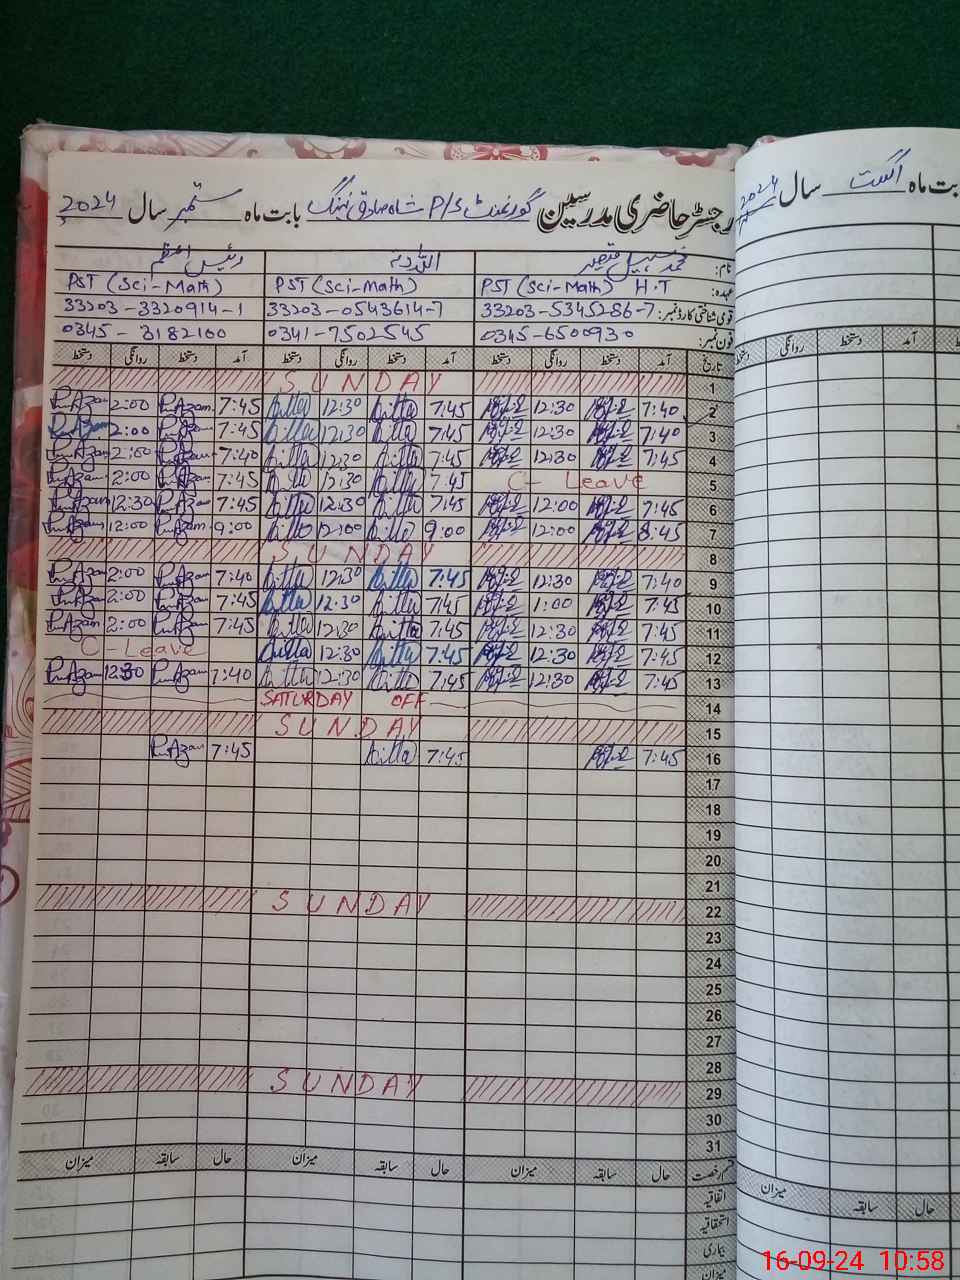 رجسٹر حاضری مدرسین گورنمنٹ P/S شاہ صادق نہنگ بابت ماہ ستمبر سال 2024
نام: محمد سہیل قیصر اللہ دتہ رئیس اعظم
عہدہ: PST (Sci-Math) H.T PST (Sci-Math) PST (Sci-Math)
قومی شناختی کارڈ نمبر: 33203-5345286-7 33203-0543614-7 33203-3320914-1
فون نمبر: 0345-6500930 0341-7502545 0345-3182100
تاریخ آمد دستخط روانگی دستخط آمد دستخط روانگی دستخط آمد دستخط روانگی دستخط
1 SUNDAY
2 7:40 12:30 7:45 Ditta 12:30 Ditta 7:45 R.Azam 2:00 R.Azam
3 7:40 12:30 7:45 Ditta 12:30 Ditta 7:45 R.Azam 2:00 R.Azam
4 7:45 12:30 7:45 Ditta 12:30 Ditta 7:40 R.Azam 2:00 R.Azam
5 C-Leave 7:45 Ditta 12:30 Ditta 7:45 R.Azam 2:00 R.Azam
6 7:45 12:00 7:45 Ditta 12:30 Ditta 7:45 R.Azam 12:30 R.Azam
7 8:45 12:00 9:00 Ditta 12:00 Ditta 9:00 R.Azam 12:00 R.Azam
8 SUNDAY
9 7:40 12:30 7:45 Ditta 12:30 Ditta 7:40 R.Azam 2:00 R.Azam
10 7:45 1:00 7:45 Ditta 12:30 Ditta 7:45 R.Azam 2:00 R.Azam
11 7:45 12:30 7:45 Ditta 12:30 Ditta 7:45 R.Azam 2:00 R.Azam
12 7:45 12:30 7:45 Ditta 12:30 Ditta C-Leave
13 7:45 12:30 7:45 Ditta 12:30 Ditta 7:40 R.Azam 12:30 R.Azam
14 SATURDAY OFF
15 SUNDAY
16 7:45 7:45 Ditta 7:45 R.Azam
17
18
19
20
21
22 SUNDAY
23
24
25
26
27
28
29 SUNDAY
30
31
قسم رخصت حال سابقہ میزان حال سابقہ میزان حال سابقہ میزان
اتفاقیہ
استحقاقیہ
بیماری
میزان
بابت ماہ اگست سال 2024
آمد دستخط روانگی دستخط
میزان سابقہ حال
16-09-24 10:58